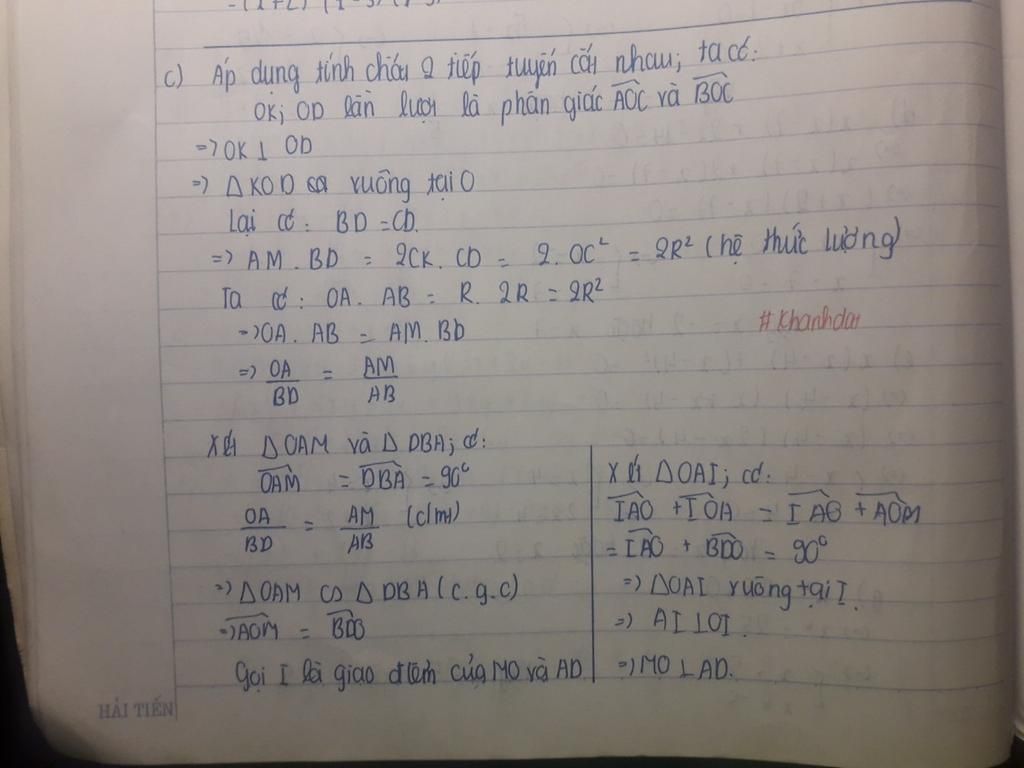 c) Áp dụng tính chất 2 tiếp tuyến cắt nhau; ta có:
OK; OD lần lượt là phân giác \widehat{AOC} và \widehat{BOC}
=> OK ⊥ OD
=> ΔKOD vuông tại O
Lại có: BD = CD.
=> AM . BD = 2CK . CD = 2. OC² = 2R² (hệ thức lượng)
Ta có: OA . AB = R. 2R = 2R²
=> OA. AB = AM . BD
#Khanhdar
=> OA/BD = AM/AB
Xét ΔOAM và ΔDBA; có:
\widehat{OAM} = \widehat{DBA} = 90°
OA/BD = AM/AB (c/mt)
=> ΔOAM ∽ ΔDBA (c.g.c)
=> \widehat{AOM} = \widehat{BDO}
Gọi I là giao điểm của MO và AD
Xét ΔOAI; có:
\widehat{IAO} + \widehat{IOA} = \widehat{IAO} + \widehat{AOM}
= \widehat{IAO} + \widehat{BDO} = 90°
=> ΔOAI vuông tại I.
=> AI ⊥ OI.
=> MO ⊥ AD.
HẢI TIẾN